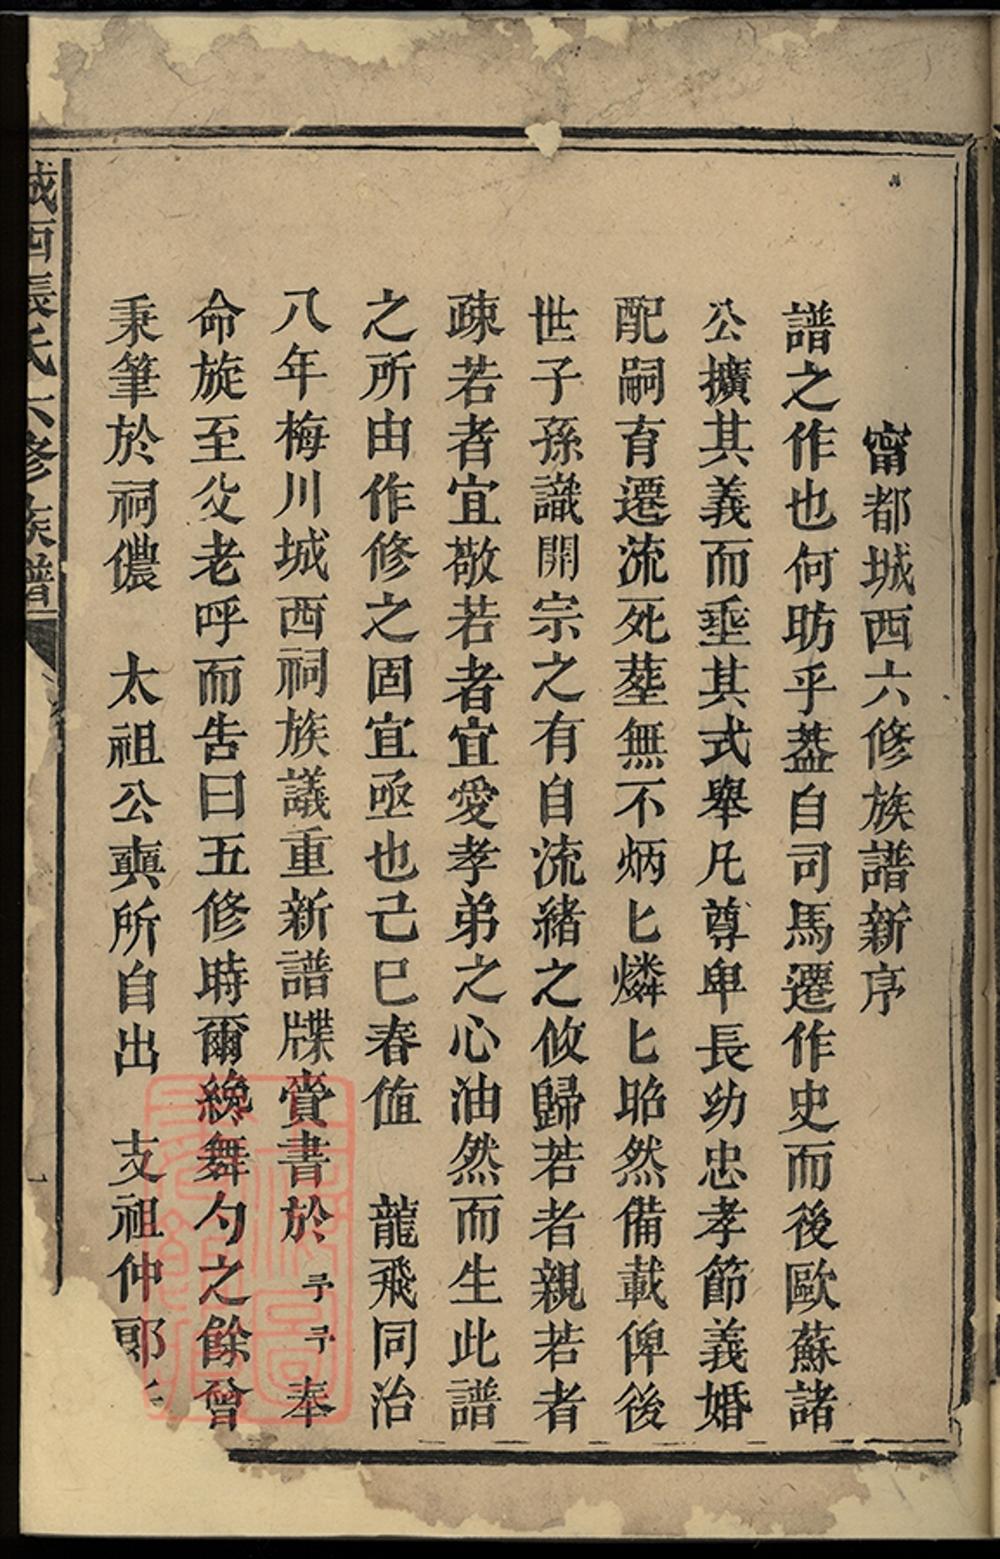 甯都城西六修族譜新序
譜之作也何昉乎葢自司馬遷作史而後歐蘇諸
公擴其義而垂其式舉凡尊卑長幼忠孝節義婚
配嗣育遷流死塟無不炳匕燐匕昭然備載俾後
世子孫識開宗之有自流緒之攸歸若者親若者
疎若者宜敬若者宜愛孝弟之心油然而生此譜
之所由作修之固宜亟也己巳春值　龍飛同治
八年梅川城西祠族議重新譜牒賫書於孑孑奉
命旋至父老呼而告曰五修時爾纔舞勺之餘曾
秉筆於祠儂　太祖公贑所自出　支祖仲郎
城西張氏六修族譜